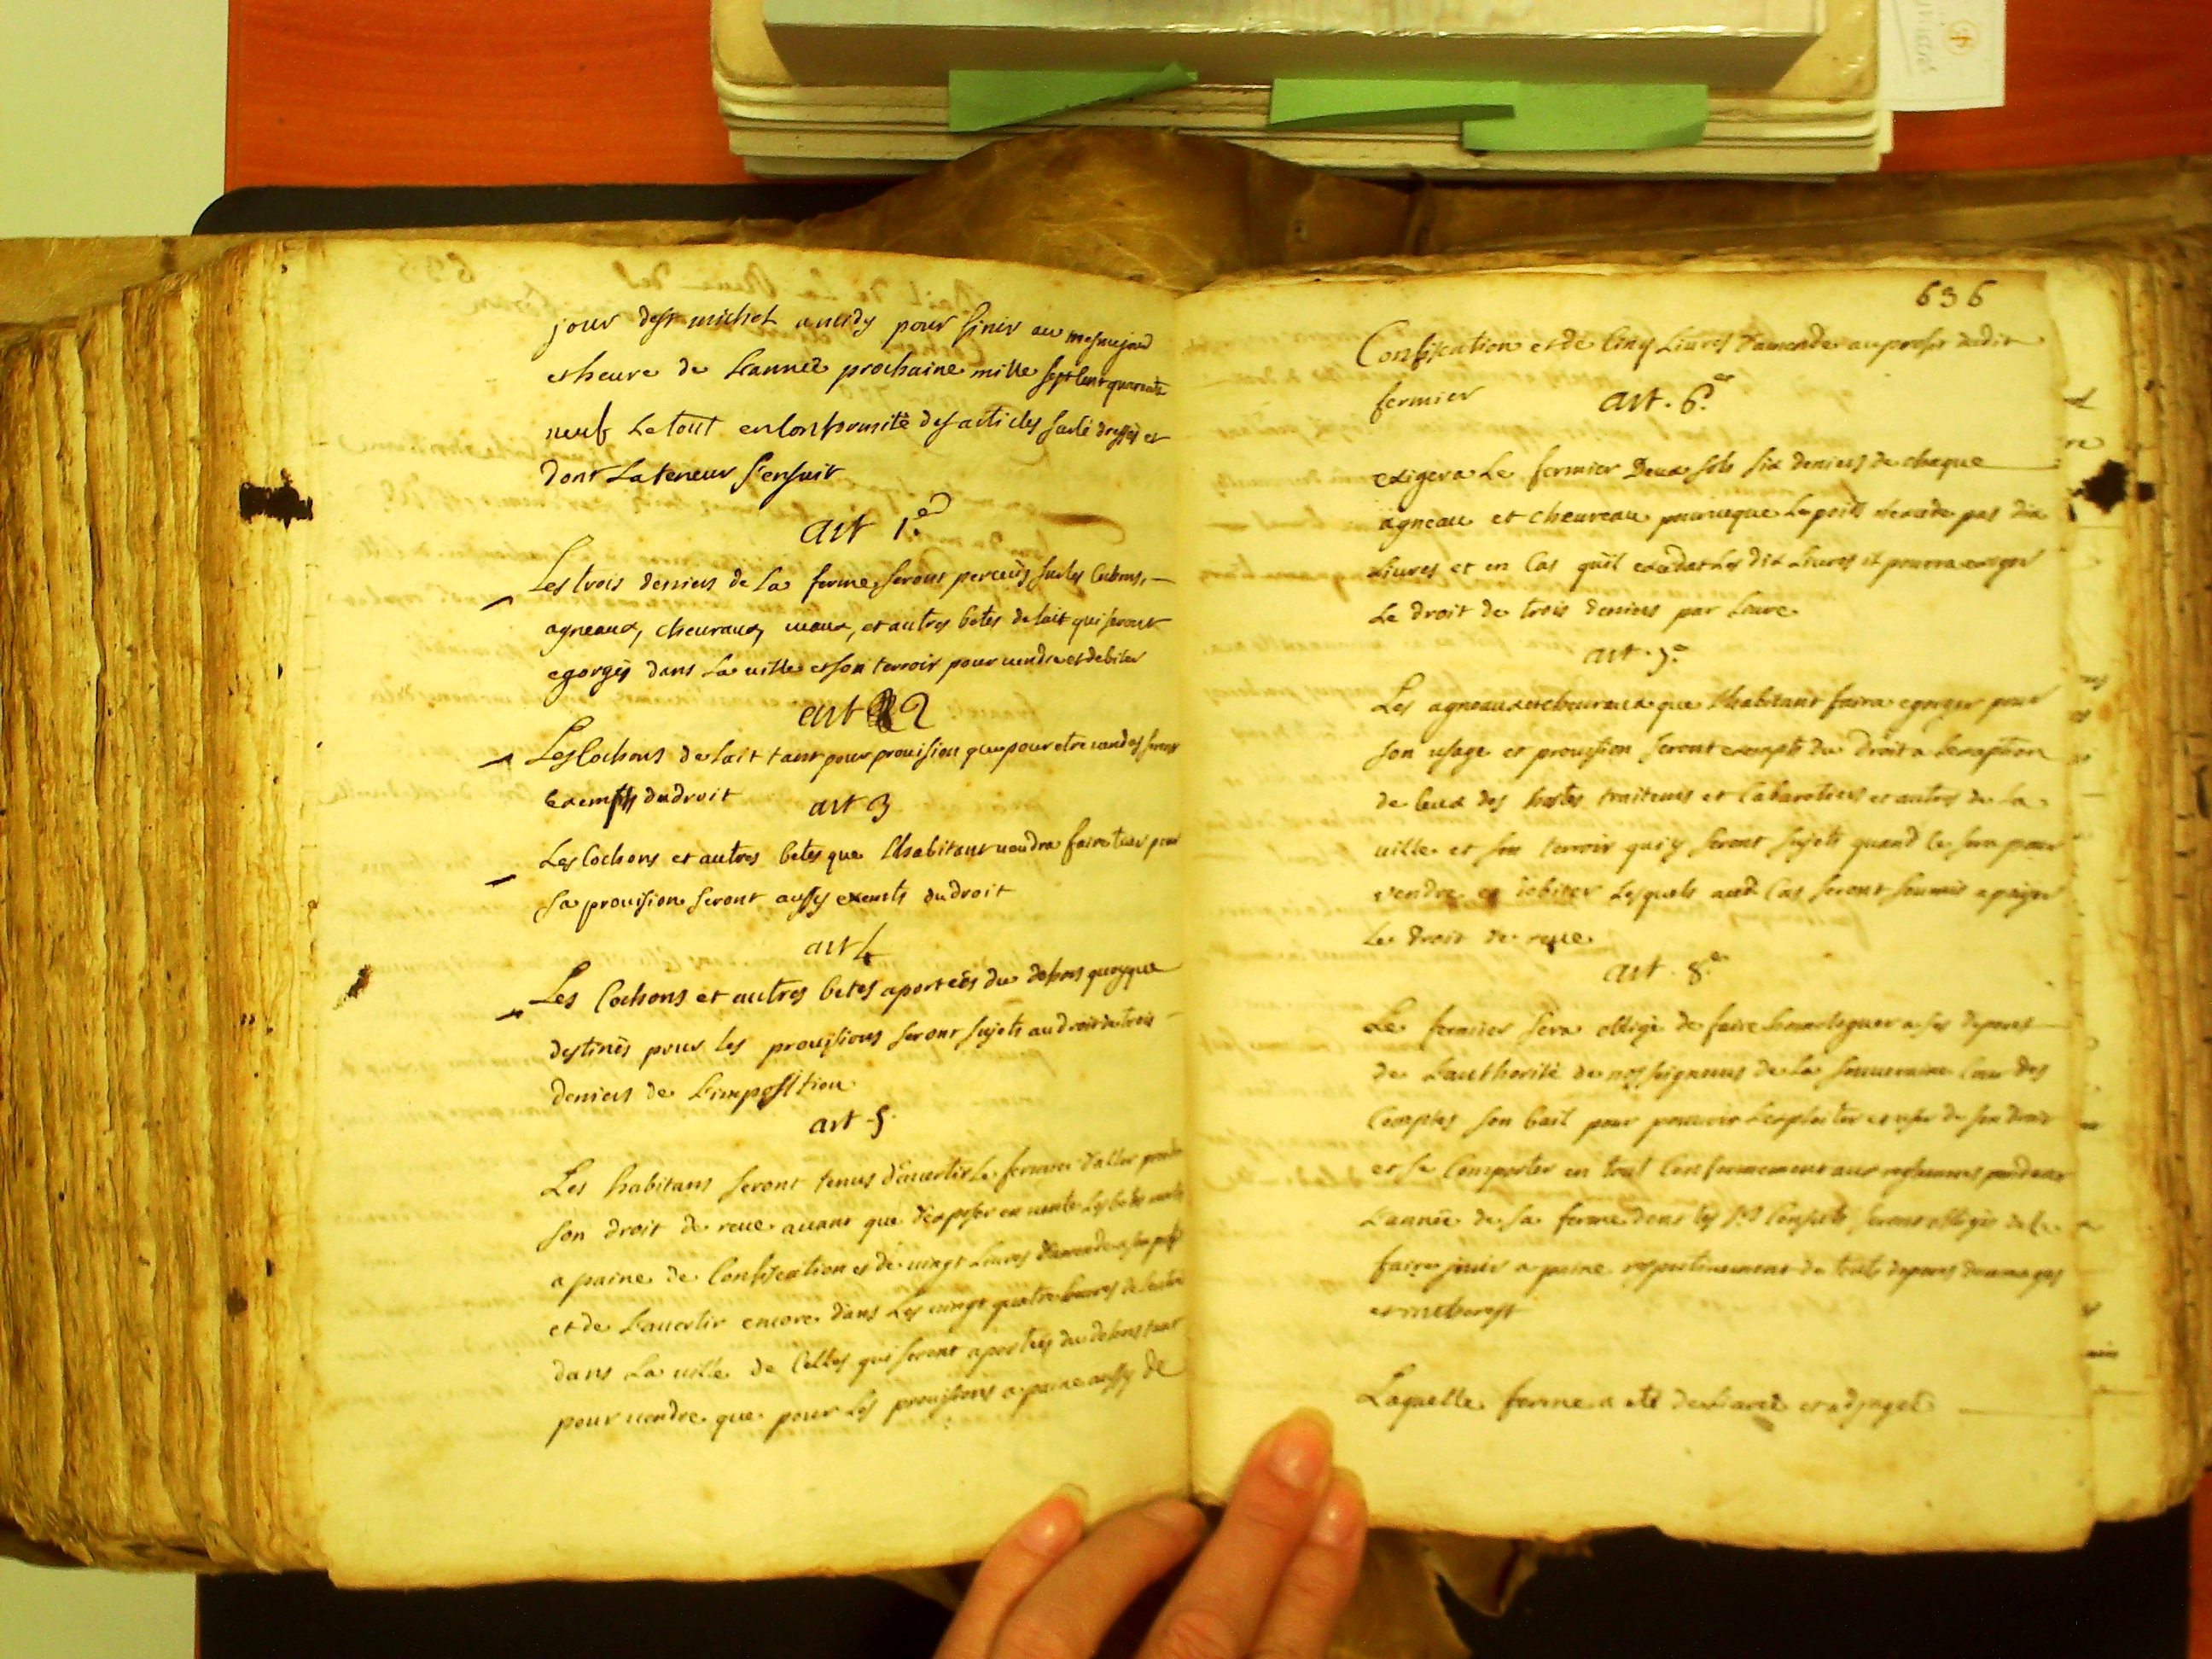 jour dest michel a midy pour finir au mesme jour
et heure de Lannée prochaine mille sept cent quarante
neuf Le tout en conformité des articles sur ce dressés et
dont La teneur s'ensuit
art 1.er
Les trois deniers de La ferme seront perceus sur les
agneaux, cheuraux, ueaux, et autres betes de lait qui seront
egorgés dans La uille et son terroir pour uendre et debiter
art 2
Les Cochons de lait tant pour prouision que pour etre uendus seront
exempts du droit
art 3
Les Cochons et autres betes que Lhabitant uoudra faire tuer pour
sa prouision seront aussy exempts du droit
art 4
Les Cochons et autres betes aportées du dehors quoyque
destinés pour les prouisions seront sujets au droit de trois
deniers de Limposition
art 5
Les habitans seront tenus d'auertir Le fermier d'aller prendre
son droit de reue auant que d'exposer en uente Les betes
a paine de Confiscation et de uingt Liures d'amende
et de Lauertir encore dans Les uingt quatre heures de
dans La uille de Celles qui seront aportées du dehors tant
pour uendre que pour Les prouisions a paine aussy de
636
Confiscation et de Cinq Liures d'amende au profit dudit
fermier
art. 6.e
exigera Le fermier Deux sols six deniers de chaque
agneau et cheureau pourueque Le poids n'excede pas dix
Liures et en Cas quil excedat Les dix Liures il pourra exiger
Le droit de trois deniers par Liure
art. 7.e
Les agneaux et cheuraux que Lhabitant faira egorger pour
son usage et prouision seront exempts du droit a Lexception
de ceux des hostes traiteurs et Cabaretiers et autres de La
uille et son terroir qui y seront sujets quand ce sera pour
vendre et debiter Lesquels aud Cas seront soumis a payer
Le droit de reue
art. 8.e
Le fermier sera obligé de faire hommologuer a ses depens
de Lauthorité de nosseigneurs de La souueraine Cour des
Comptes son bail pour pouuoir Lexploiter et user de son droit
et se Comporter en tout Conformement aux reglements pendant
Lannée de sa ferme dont les srs Consuls seront obligés de Le
faire jouir a peine respectiuement de touts depens dommages
et interest
Laquelle ferme a eté deliurée et adjugée